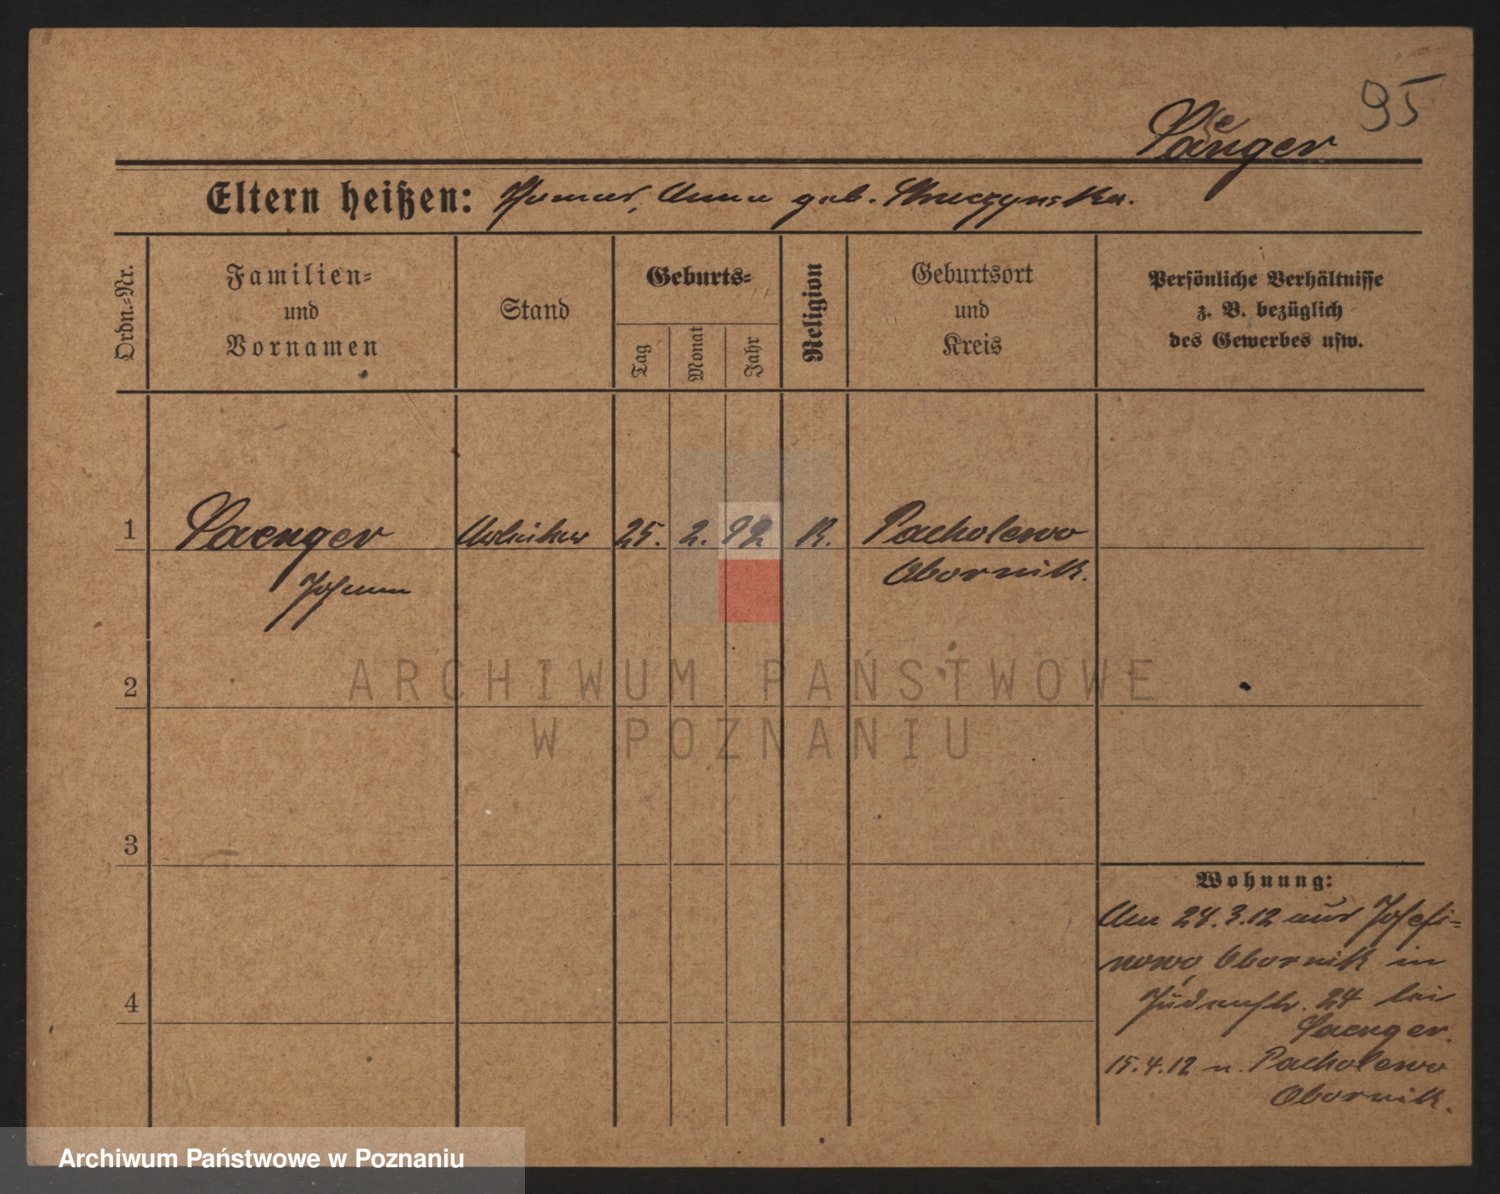 95
Saenger
Eltern heißen: Thomas, Anna geb. Skrzczynska.
Ordn.-Nr.
Familien-
und
Vornamen
Stand
Geburts-
Tag
Monat
Jahr
Religion
Geburtsort
und
Kreis
Persönliche Verhältnisse
z. B. bezüglich
des Gewerbes usw.
1 Saenger Arbeiter 25. 2. 92 K. Pacholewo
Johann Obornik.
2
3
4
Wohnung:
Am 28.3.12 aus Josefi-
nowo, Obornik in
Judenstr. 24 bei
Saenger.
15.4.12 n. Pacholewo
Obornik.
ARCHIWUM PAŃSTWOWE
W POZNANIU
Archiwum Państwowe w Poznaniu